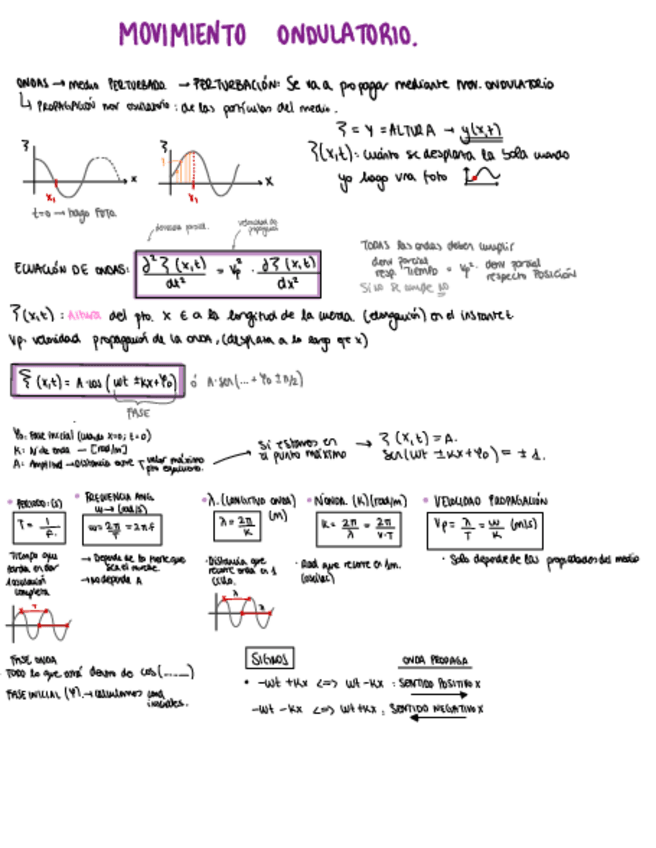 MOVIMIENTO ONDULATORIO.
ONDAS → medio PERTURBADO → PERTURBACIÓN: Se va a propagar mediante mov. ONDULATORIO
↳ PROPAGACIÓN mov ondulatorio: de las partículas del medio.
ξ = Y = ALTURA → y(x,t)
ξ(x,t): cuánto se desplaza la bola cuando
yo hago una foto
ξ
x
x₁
t=0 → hago FOTO
ξ
Y
x
x₁
derivada parcial.
velocidad de propagación
ECUACIÓN DE ONDAS: ∂²ξ(x,t)/dt² = Vp² · ∂ξ(x,t)/dx²
TODAS las ondas deben cumplir
deriv parcial resp. TIEMPO = Vp² · deriv parcial respecto POSICIÓN
Si no se cumple no
ξ(x,t): Altura del pto. x ∈ a la longitud de la cuerda (elongación) en el instante t
Vp: velocidad propagación de la onda, (desplaza a lo largo eje x)
ξ(x,t) = A·cos(ωt ± kx + φ₀) ó A·sen(... + φ₀ ± π/2)
FASE
φ₀: Fase inicial (cuando x=0; t=0)
K: Nº de onda — [rad/m]
A: Amplitud → Distancia entre valor máximo pto equilibrio.
Si estamos en
el punto máximo
→ ξ(x,t) = A.
sen(ωt ± kx + φ₀) = ± 1.
• PERIODO: (s)
T = 1/f.
Tiempo que
tarda en dar
1 oscilación
completa
T
• FRECUENCIA ANG.
ω → (rad/s)
ω = 2π/T = 2πf
→ Depende de la fuente que
→ no depende A
• λ. (LONGITUD ONDA)
(m)
λ = 2π/K
· Distancia que
recorre onda en 1
ciclo.
λ
λ
• NºONDA. (K)(rad/m)
K = 2π/λ = 2π/V·T
· Rad que recorre en 1m.
(oscilac)
• VELOCIDAD PROPAGACIÓN
Vp = λ/T = ω/K (m/s)
· Solo depende de las propiedades del medio
FASE ONDA
TODO lo que está dentro de cos(......)
FASE INICIAL (φ). → calculamos cond
iniciales.
SIGNOS
ONDA PROPAGA
• -ωt + kx <=> ωt - kx : SENTIDO POSITIVO X
-ωt - kx <=> ωt + kx : SENTIDO NEGATIVO X